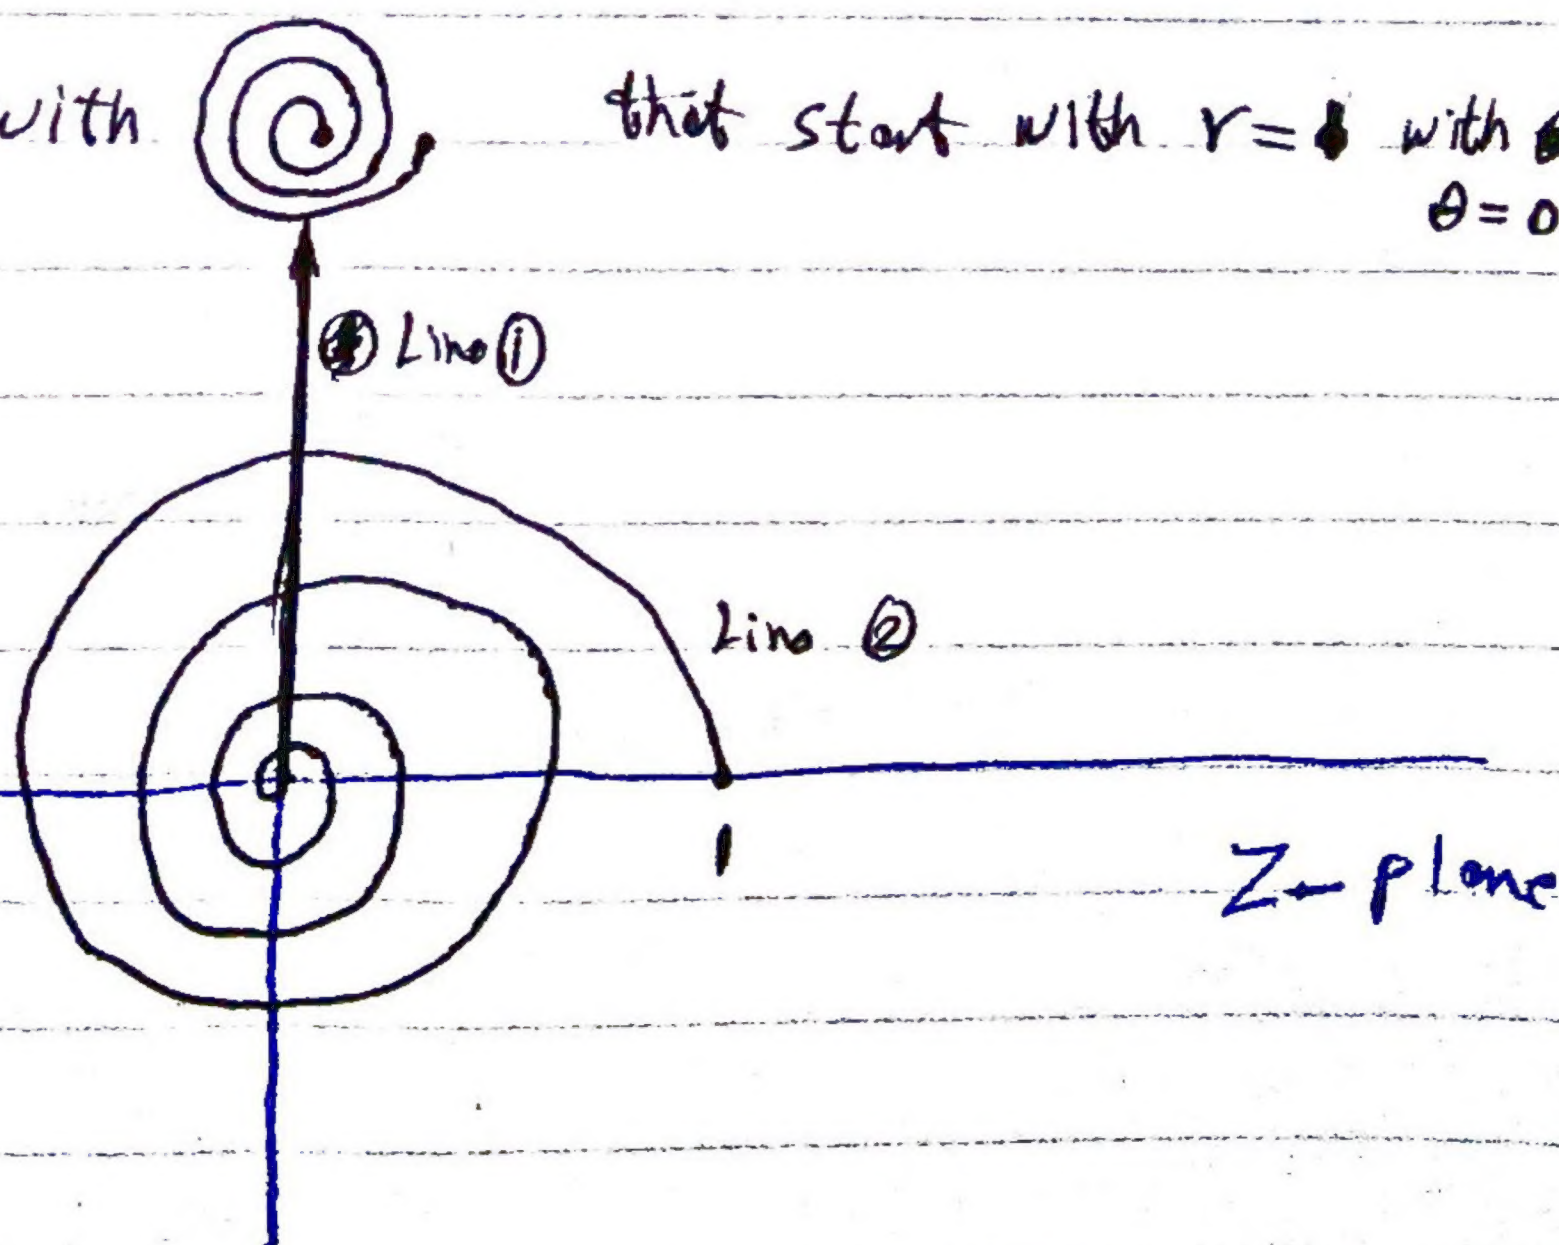 with that start with r = 1 with
θ = 0
Line ①
Line ②
1
Z- plane